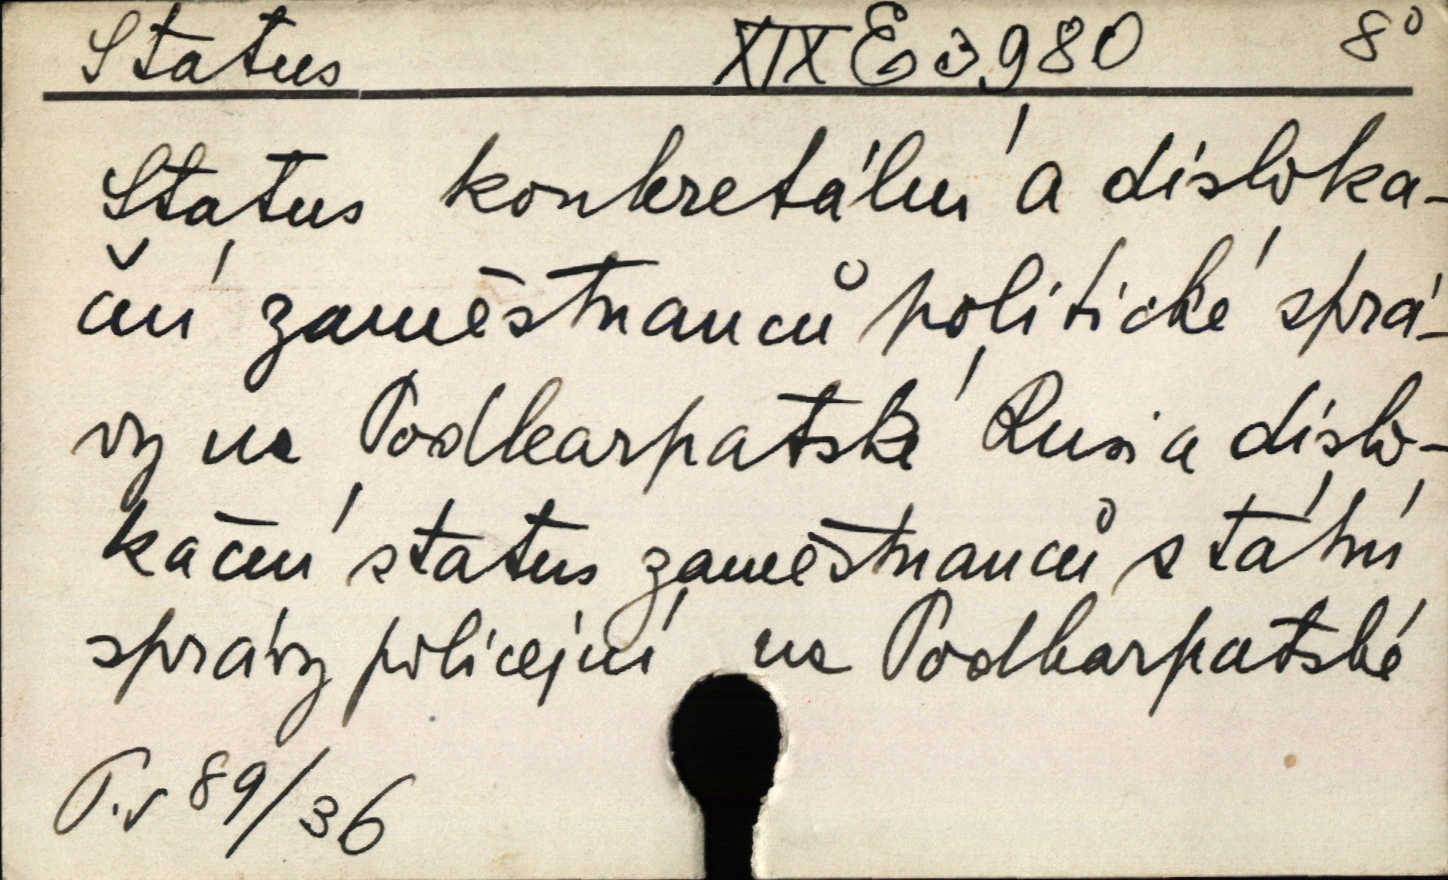 Status XIX E 3.980 8°
Status konkretální a disloka-
ční zaměstnanců politické sprá-
vy na Podkarpatské Rusi a dislo-
kační status zaměstnanců státní
správy policejní na Podkarpatské
P.v 89/36